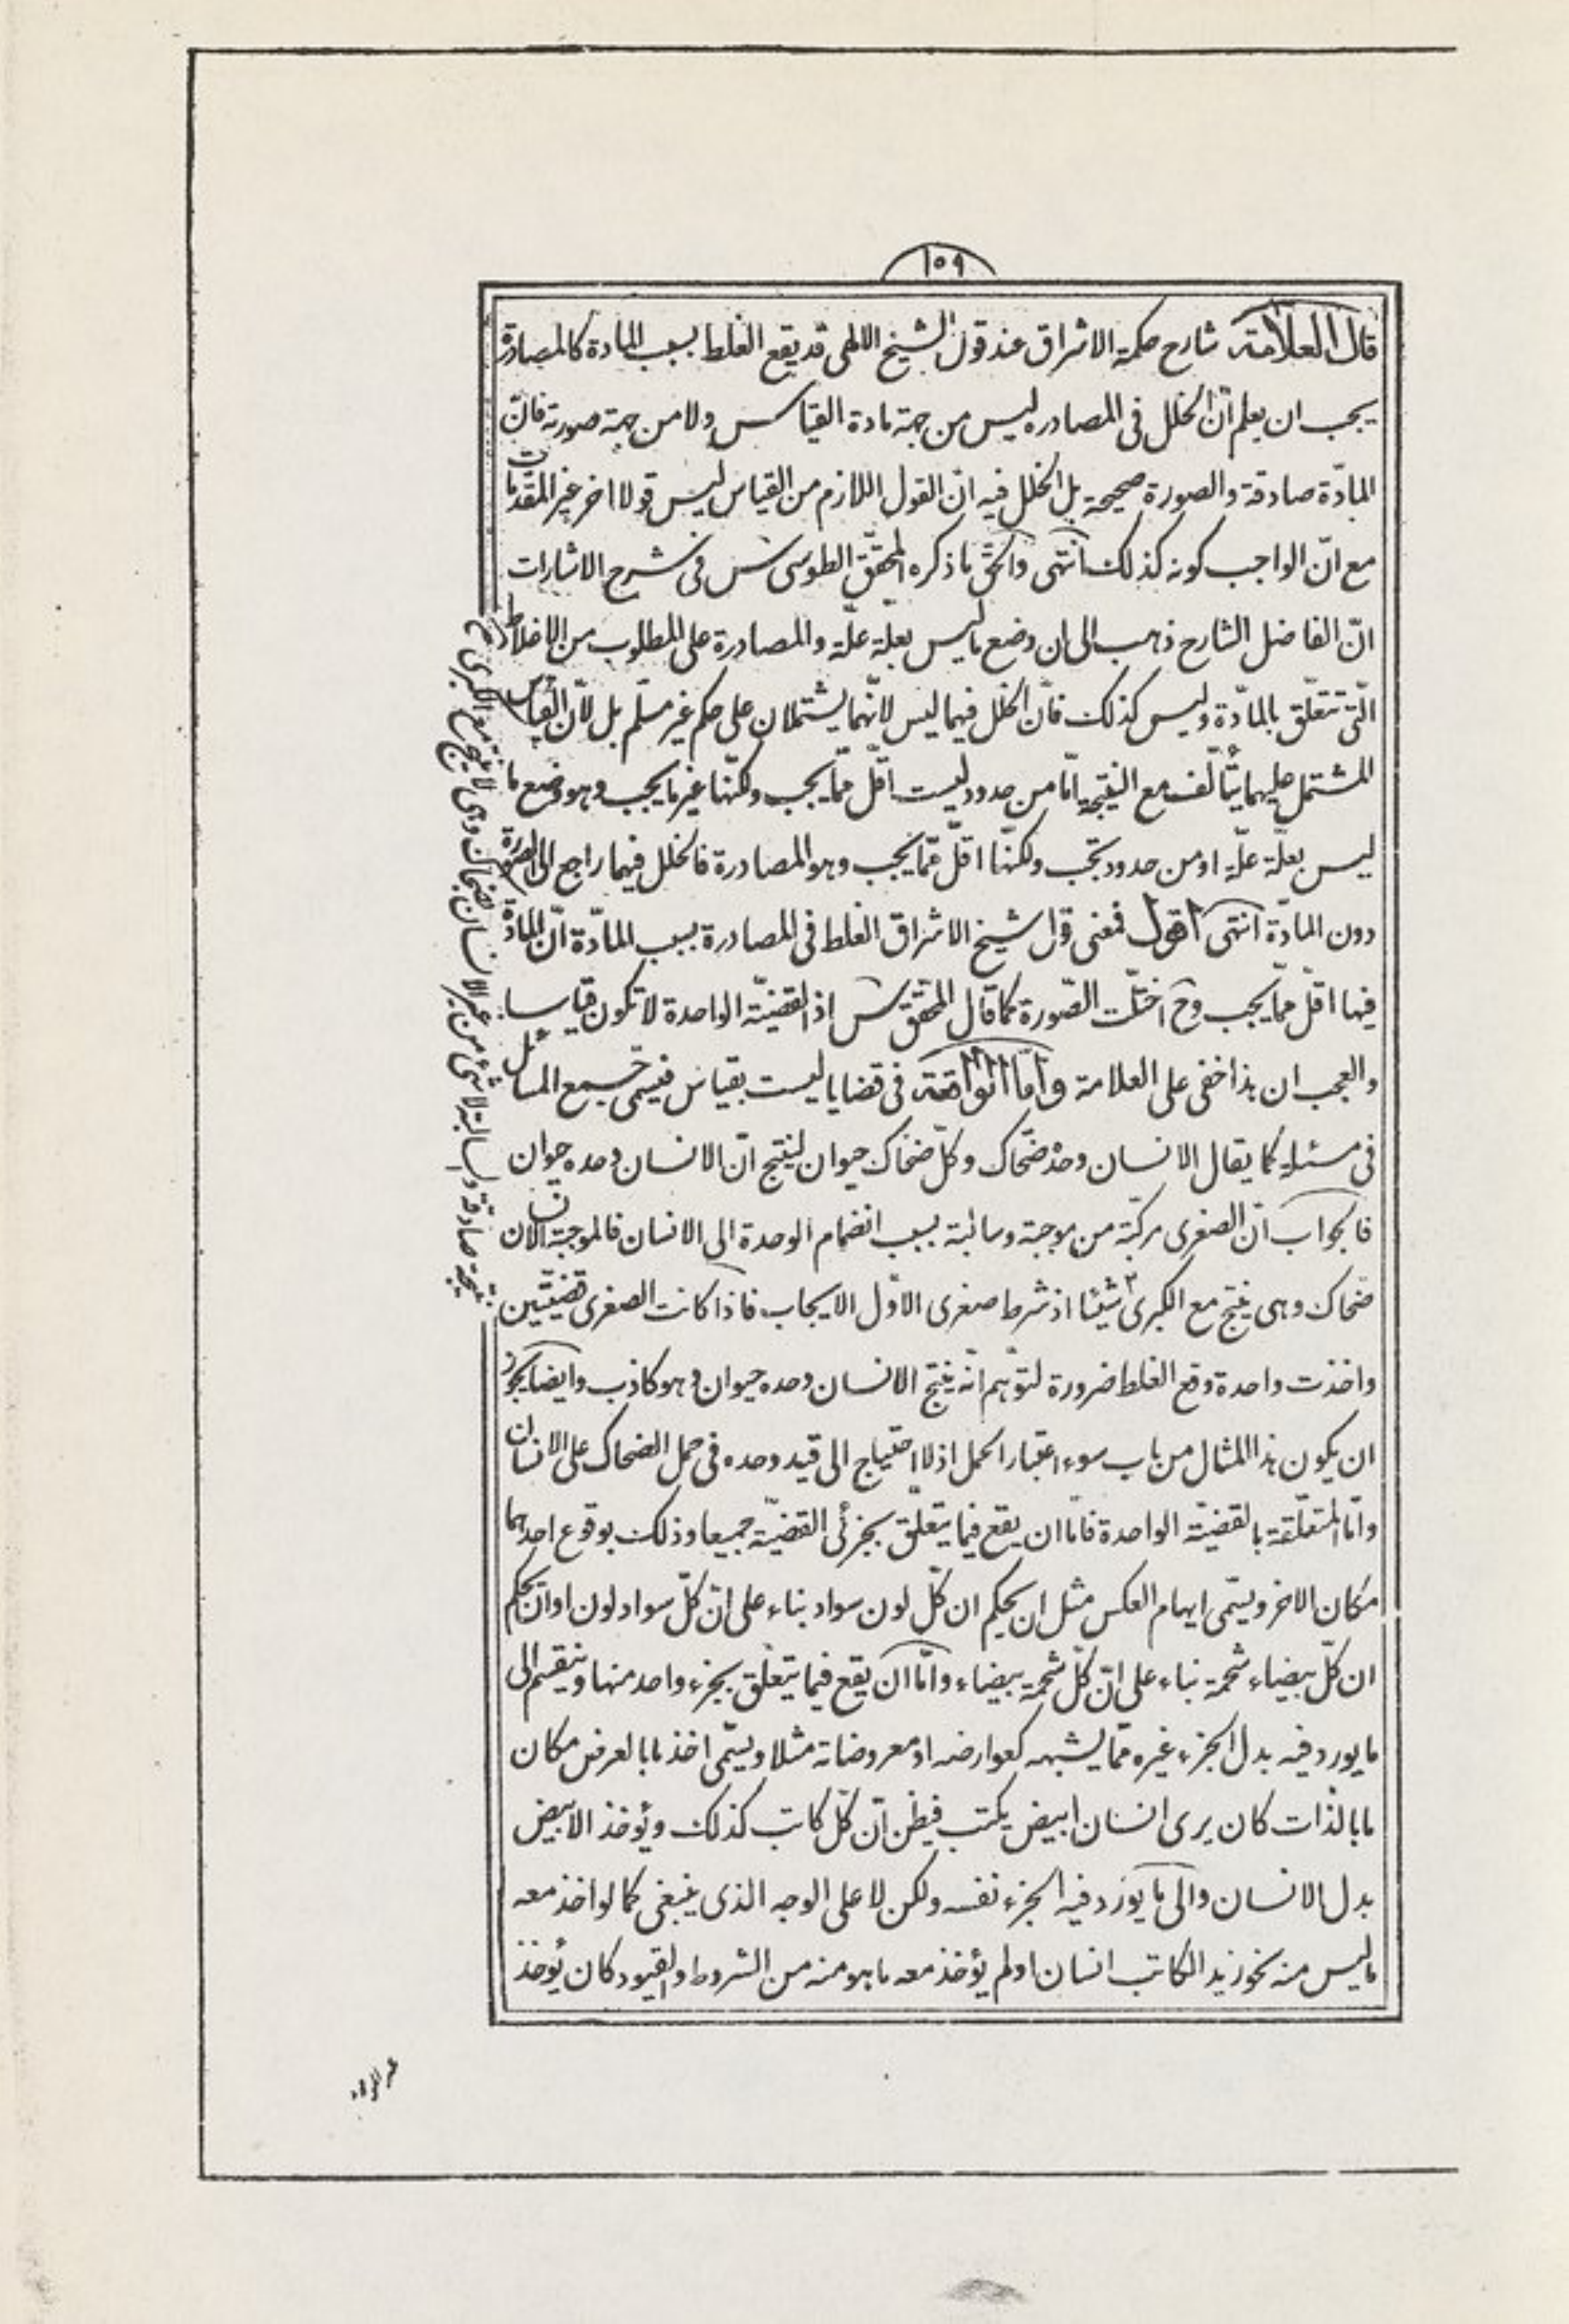 ١٥٩
قال العلامة شارح حكمة الاشراق عند قول الشيخ الالهى قد يقع الغلط بسبب المادة كالمصادرة
يجب ان يعلم انّ الخلل فى المصادره ليس من جهة مادة القياس ولا من جهة صورته فانّ
المادّة صادقة والصورة صحيحة بل الخلل فيه انّ القول اللازم من القياس ليس قولا اخر غير المقدمات
مع انّ الواجب كونه كذلك انتهى والحق ما ذكره المحقّق الطوسى س فى شرح الاشارات
انّ الفاضل الشارح ذهب الى ان وضع ما ليس بعلة علّة والمصادرة على المطلوب من الاغلاط
الّتى تتعلّق بالمادّة وليس كذلك فانّ الخلل فيهما ليس لانّهما يشتملان على حكم غير مسلّم بل لانّ القياس
المشتمل عليهما يتألّف مع النتيجة امّا من حدود ليست اقلّ ممّا يجب ولكنّها غير ما يجب وهو وضع ما
ليس بعلّة علّة او من حدود تجب ولكنّها اقلّ ممّا يجب وهو المصادرة فالخلل فيهما راجع الى الصورة
دون المادّة انتهى اقول فمعنى قول شيخ الاشراق الغلط فى المصادرة بسبب المادّة انّ المادّة
فيها اقلّ ممّا يجب وح اختلّت الصّورة كما قال المحقق س اذ القضيّة الواحدة لا تكون قياسا
والعجب ان هذا خفى على العلامة وامّا الواقعة فى قضايا ليست بقياس فيسمى جميع المسائل
فى مسئلة كما يقال الانسان وحده ضحّاك وكلّ ضحّاك حيوان لينتج انّ الانسان وحده حيوان
فالجواب انّ الصغرى مركّبة من موجبة وسالبة بسبب انضمام الوحدة الى الانسان فالموجبة الانسان
ضحاك وهى ينتج مع الكبرى ٢ شيئا اذ شرط صغرى الاوّل الايجاب فاذا كانت الصغرى قضيّتين
واخذت واحدة وقع الغلط ضرورة لتوّهم انّه ينتج الانسان وحده حيوان وهو كاذب وايضا يجوز
ان يكون هذا المثال من باب سوء اعتبار الحمل اذ لا احتياج الى قيد وحده فى حمل الضحاك على الانسان
وامّا المتعلّقة بالقضيّة الواحدة فامّا ان يقع فيما يتعلّق بجزئى القضيّة جميعا وذلك بوقوع احدهما
مكان الاخر ويسمّى ايهام العكس مثل ان يحكم ان كلّ لون سواد بناء على انّ كلّ سواد لون او ان يحكم
ان كلّ بيضاء شحمة بناء على انّ كلّ شحمة بيضاء وامّا ان يقع فيما يتعلّق بجزء واحد منها وينقسم الى
ما يورد فيه بدل الجزء غيره ممّا يشبهه كعوارضه او معروضاته مثلا ويسمّى اخذ ما بالعرض مكان
ما بالذات كان يرى انسان ابيض يكتب فيظن انّ كلّ كاتب كذلك ويؤخذ الابيض
بدل الانسان والى ما يورد فيه الجزء نفسه ولكن لا على الوجه الذى ينبغى كما لو اخذ معه
ما ليس منه نحو زيد الكاتب انسان او لم يؤخذ معه ما هو منه من الشروط والقيود كان يؤخذ
نتيجة صادقة والسالبة لا شئ من غير الانسان بضحاك وهى لا ينتج مع الكبرى